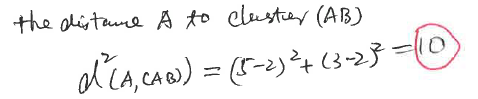 the distance A to cluster (AB)
d²(A,(AB)) = (5-2)²+(3-2)² = 10